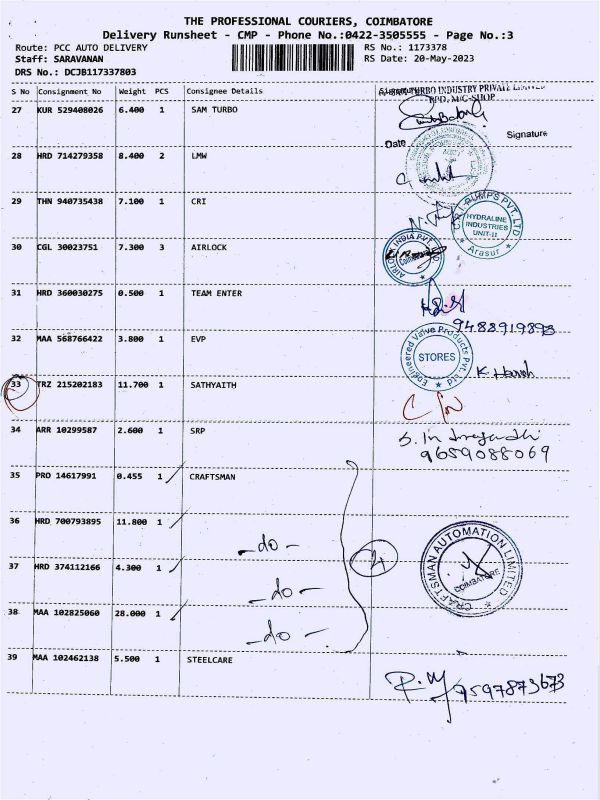 THE PROFESSIONAL COURIERS, COIMBATORE
Delivery Runsheet - CMP - Phone No.:0422-3505555 - Page No.:3
Route: PCC AUTO DELIVERY RS No.: 1173378
Staff: SARAVANAN RS Date: 20-May-2023
DRS No.: DCJB117337803
S No Consignment No Weight PCS Consignee Details
TURBO INDUSTRY PRIVATE LIMITED
M/C-SHOP
27 KUR 529408026 6.400 1 SAM TURBO
Date Signature
28 HRD 714279358 8.400 2 LMW
29 THN 940735438 7.100 1 CRI
C.R.I. PUMPS PVT. LTD
HYDRALINE
INDUSTRIES
UNIT-II
Arasur
30 CGL 30023751 7.300 3 AIRLOCK
31 HRD 360030275 0.500 1 TEAM ENTER
9488919893
32 MAA 568766422 3.800 1 EVP
Engineered Valve Products Pvt. Ltd
STORES
33 TRZ 215202183 11.700 1 SATHYAITH
34 ARR 10299587 2.600 1 SRP
9659088069
35 PRO 14617991 0.455 1 CRAFTSMAN
36 HRD 700793895 11.800 1
- do -
37 HRD 374112166 4.300 1
- do -
4
CRAFTSMAN AUTOMATION LIMITED
COIMBATORE
38 MAA 102825060 28.000 1
- do -
39 MAA 102462138 5.500 1 STEELCARE
7597873673